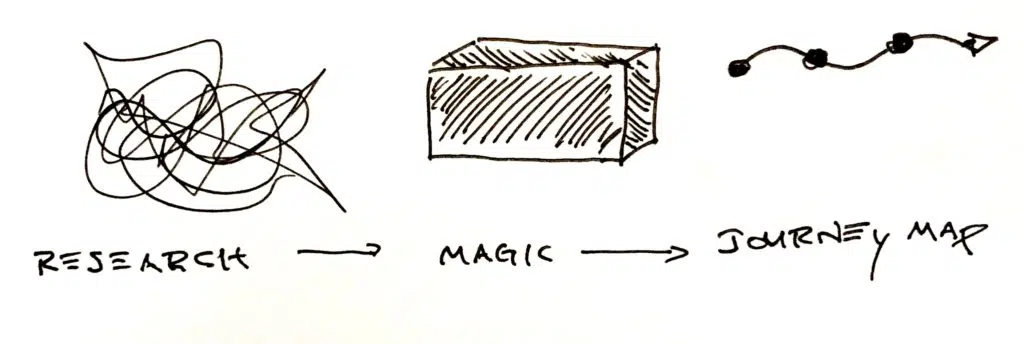 RESEARCH → MAGIC → JOURNEY MAP